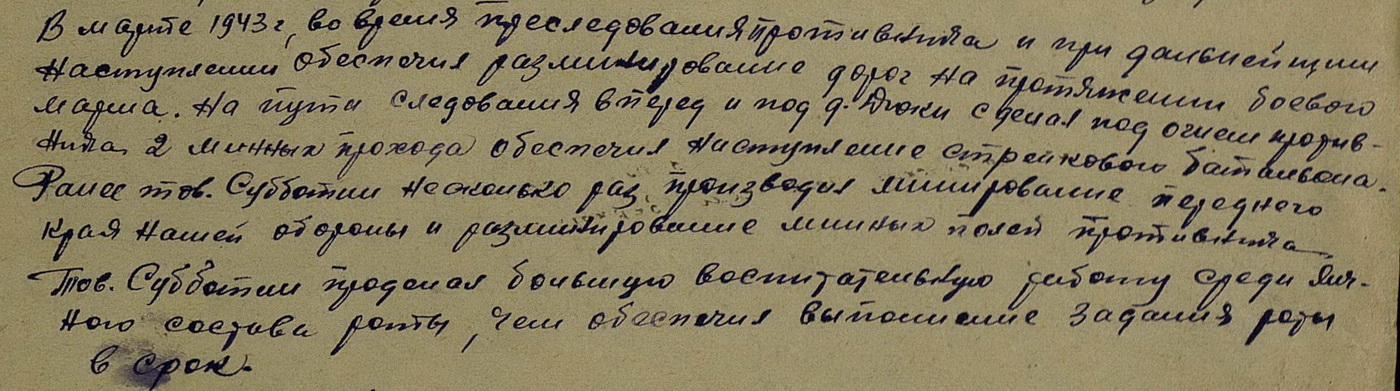 В марте 1943 г, во время преследования противника и при дальнейшим
наступлении обеспечил разминирование дорог на протяжении боевого
марша. На пути следования вперед и под д. Дюки сделал под огнем против-
ника 2 минных прохода обеспечил наступление стрелкового батальона.
Ранее тов. Субботин несколько раз производил минирование переднего
края нашей обороны и разминирование минных полей противника
Тов. Субботин проделал большую воспитательную работу среди лич-
ного состава роты, чем обеспечил выполнение задания роты
в срок.